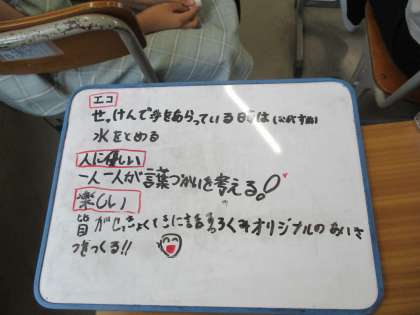 エコ
せっけんで手をあらっている時は
水をとめる
人に優しい
一人一人が言葉づかいを考える!
楽しい
皆がせっきょくてきに話す オリジナルのあいさ
つをつくる!!